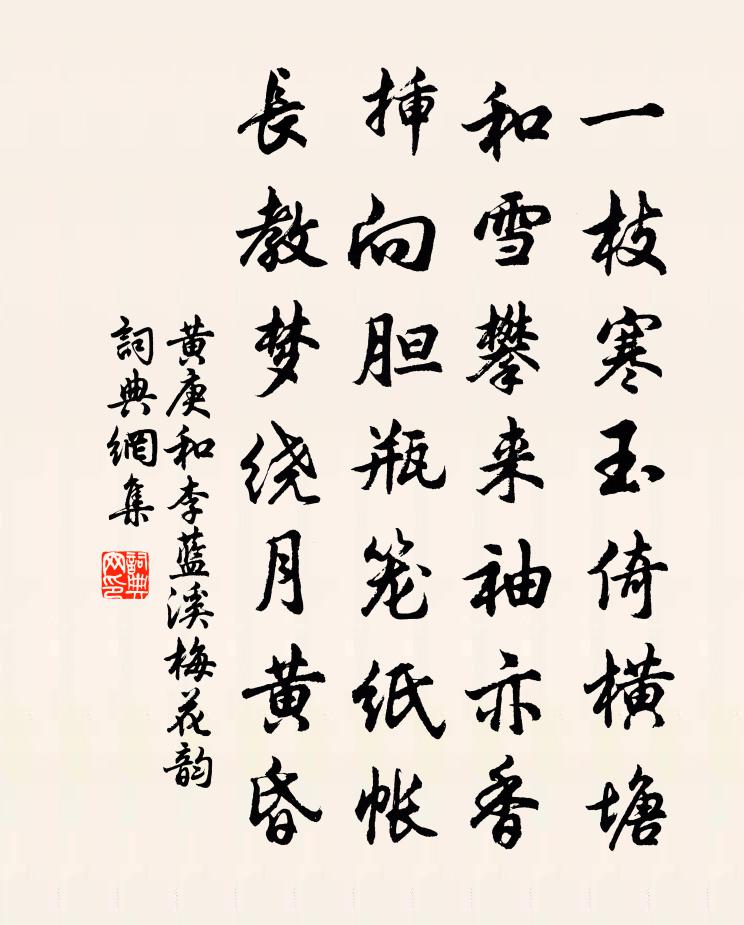 一枝寒玉倚横塘
和雪攀来袖亦香
挿向胆瓶笼纸帐
長教梦绕月黄昏
黄庚和李蓝溪梅花韵
詞典網集
詞典网印